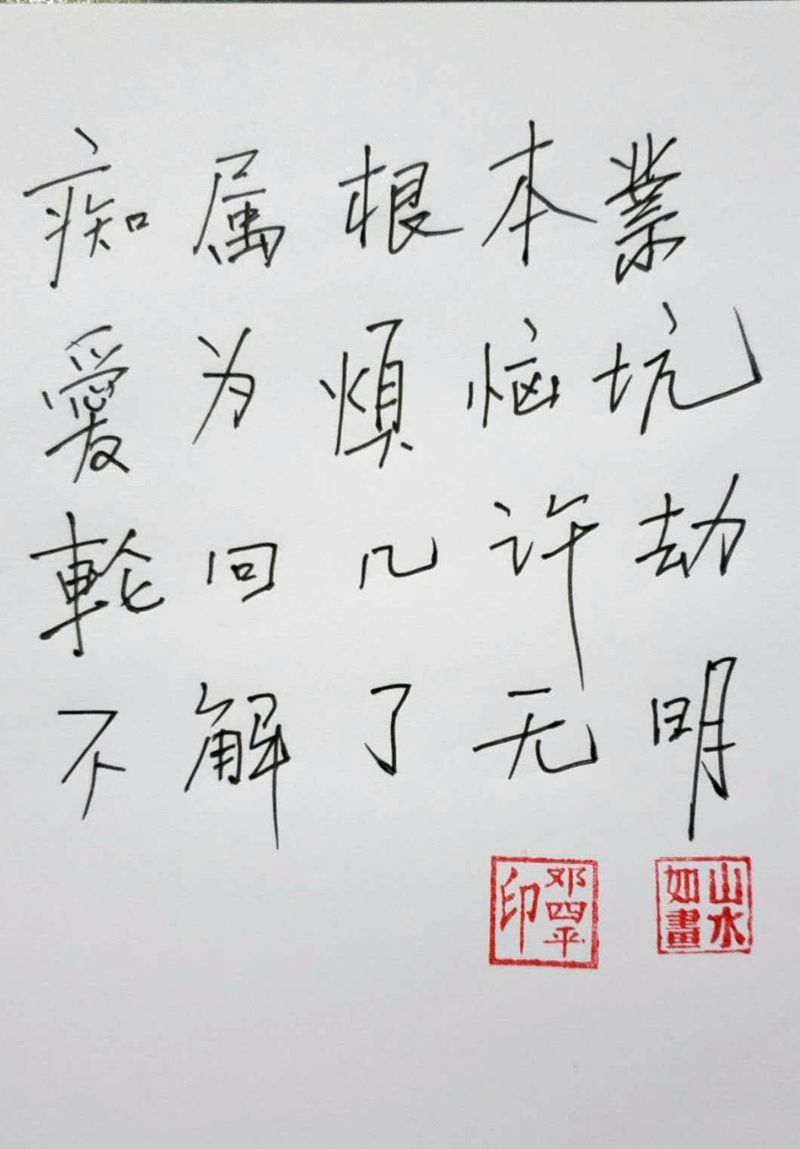 痴属根本業
愛为煩恼坑
輪回几许劫
不解了无明
邓四平印
山水如畫